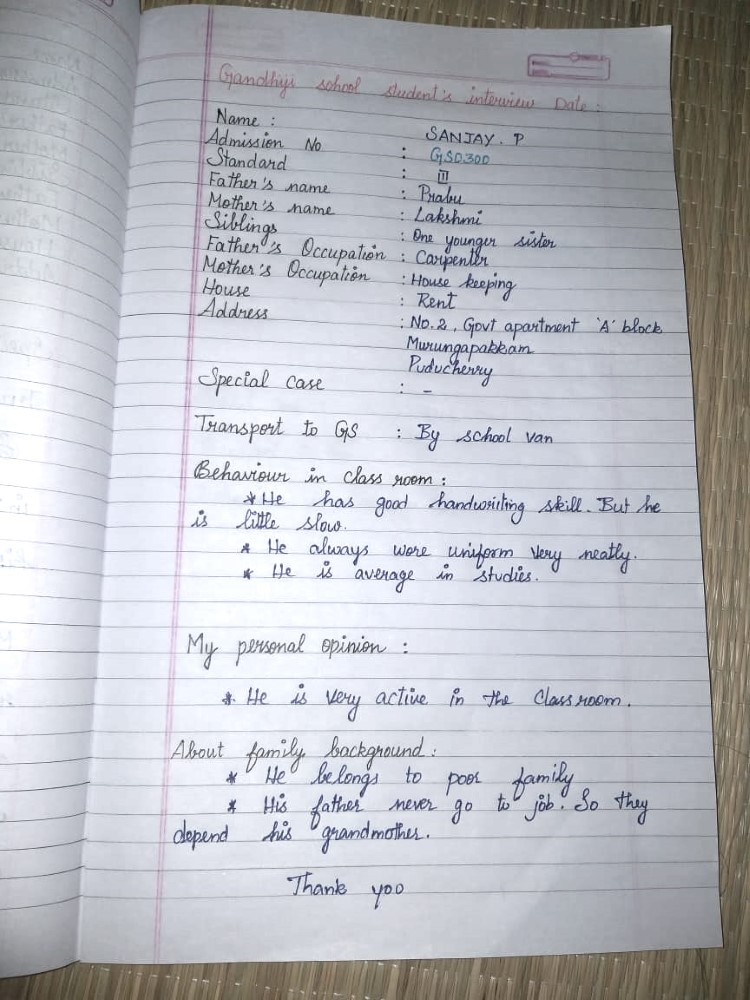 Gandhiji school student's interview Date :
Name : SANJAY. P
Admission No : GSD300
Standard : III
Father's name : Prabu
Mother's name : Lakshmi
Siblings : One younger sister
Father's Occupation : Carpenter
Mother's Occupation : House keeping
House : Rent
Address : No.2, Govt apartment 'A' block
Murungapakkam
Puducherry
Special case : -
Transport to GS : By school van
Behaviour in class room :
* He has good handwriting skill. But he
is little slow.
* He always wore uniform very neatly.
* He is average in studies.
My personal opinion :
* He is very active in the classroom.
About family background :
* He belongs to poor family
* His father never go to job. So they
depend his grandmother.
Thank you